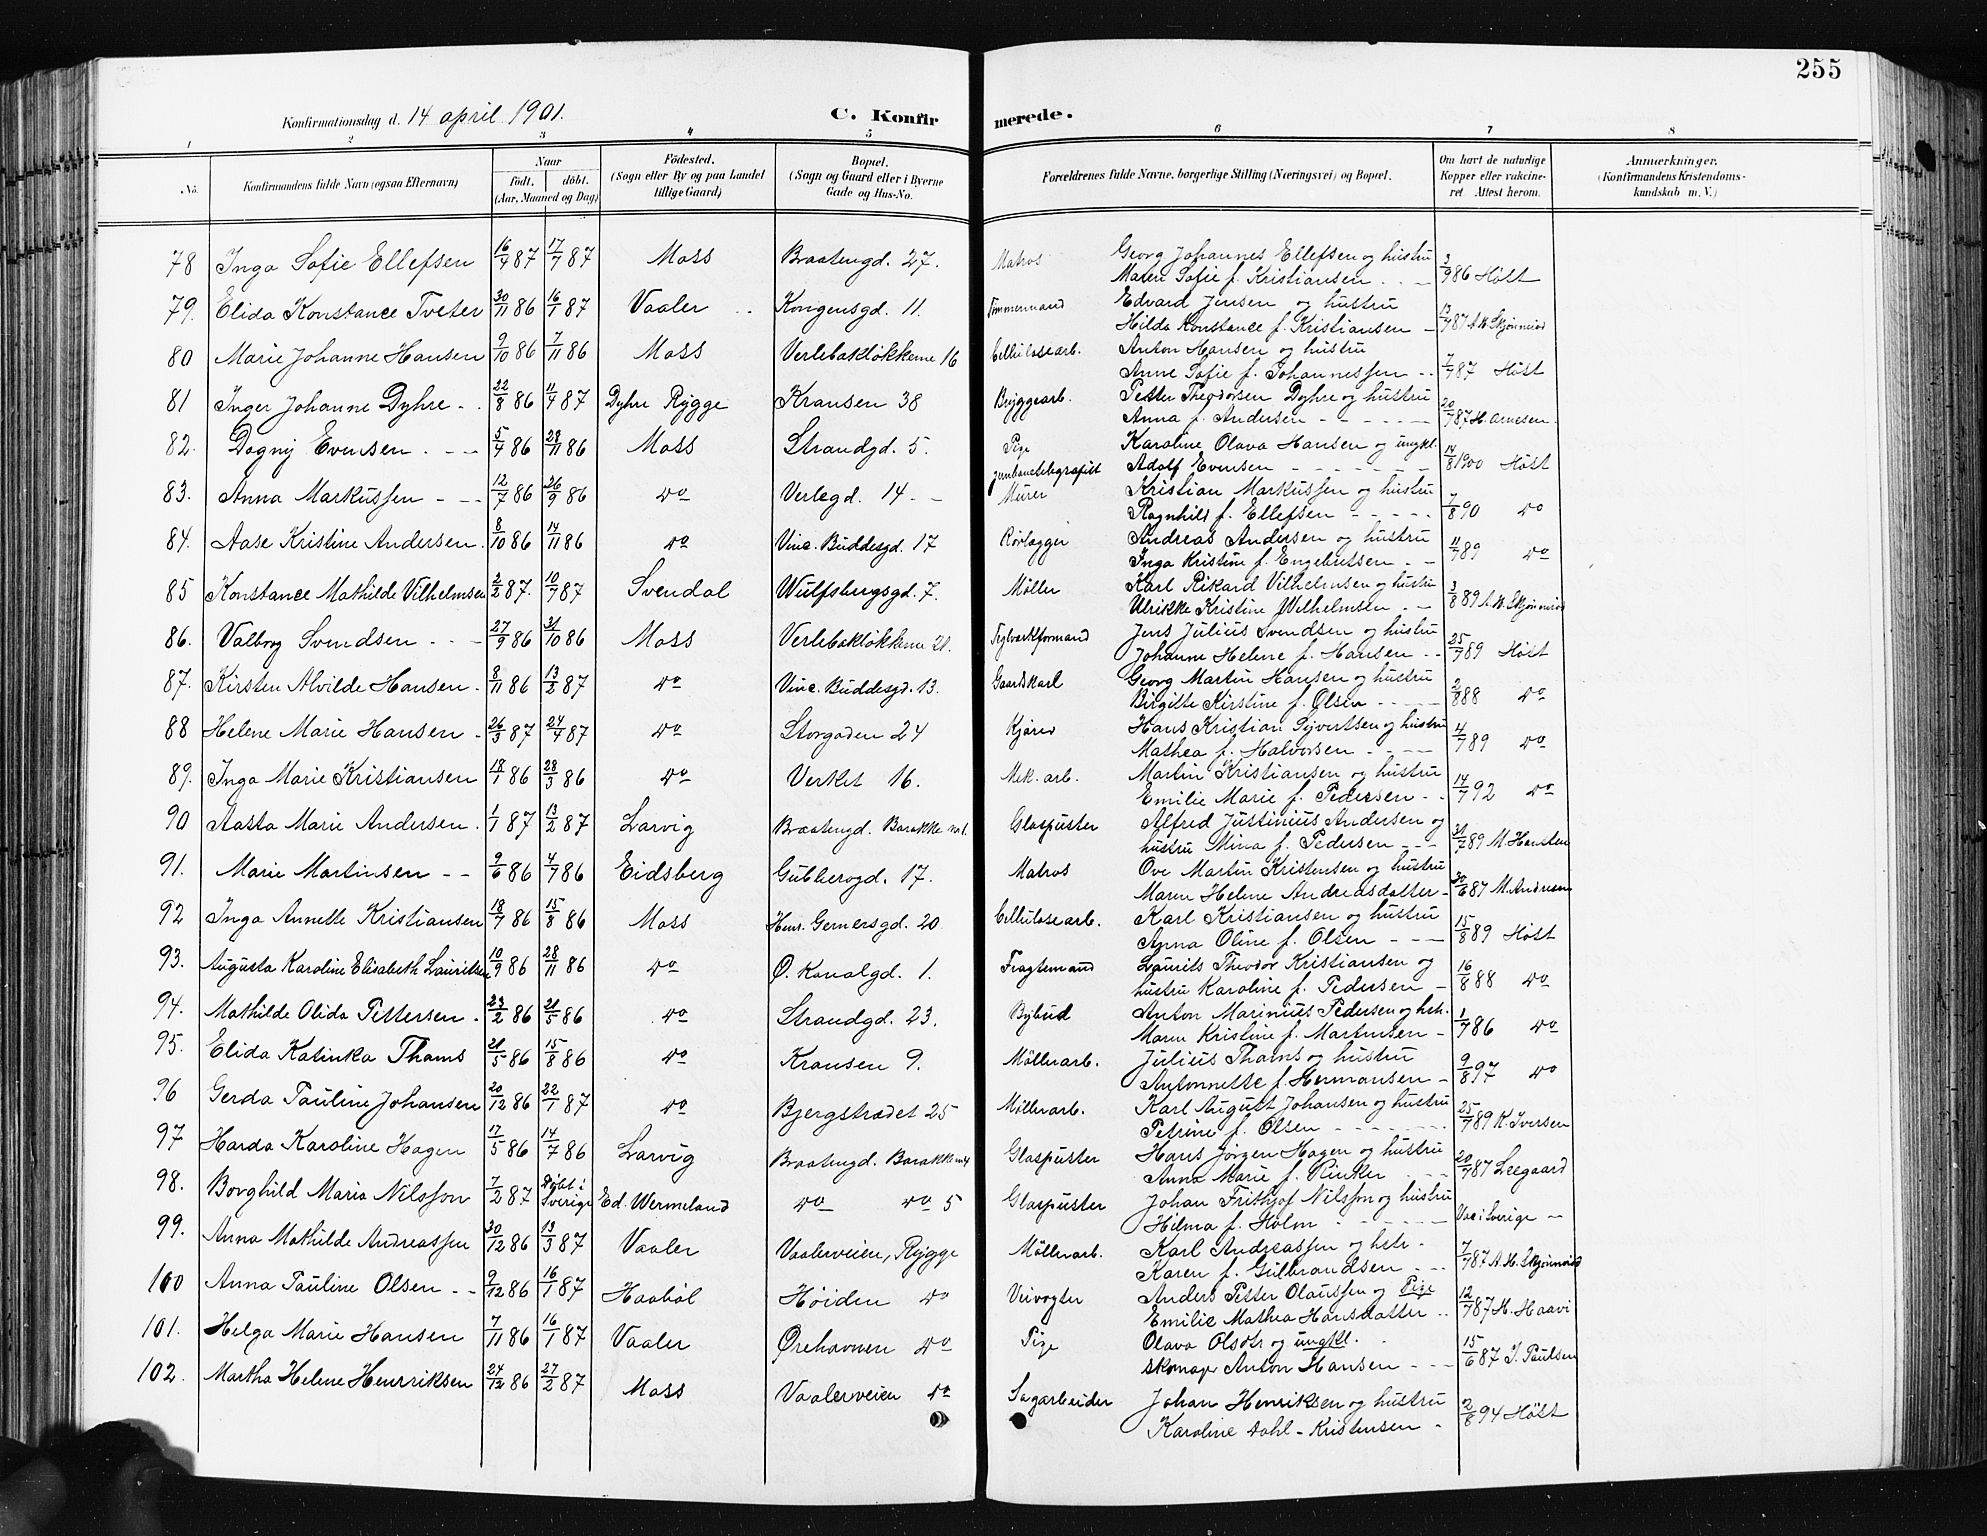 255
Konfirmationsdag d. 14 april 1901. C. Konfirmerede.
1 2 3 4 5 6 7 8
No. Konfirmandens fulde Navn (ogsaa Efternavn) Naar Født. døbt. (Aar, Maaned og Dag) Fødested. (Sogn eller By og paa Landet tillige Gaard) Bopæl. (Sogn og Gaard eller i Byerne Gade og Hus-No. Forældrenes fulde Navne, borgerlige Stilling (Næringsvei) og Bopæl. Om havt de naturlige Kopper eller vakcineret Attest herom. Anmærkninger. (Konfirmandens Kristendomskundskab m. V.)
78 Inga Sofie Ellefsen 16/4 87 17/7 87 Moss Braatengd. 27. Matros Georg Johannes Ellefsen og hustru
Maren Sofie f. Kristiansen 3/9 86 Höst
79. Elida Konstance Tveter 30/11 86 16/1 87 Vaaler Kongensgd. 11. Tømmermand Edvard Jensen og hustru
Hilda Konstance f. Kristiansen 13/7 87 A. H. Skjønneiod
80 Marie Johanne Hansen 9/10 86 7/11 86 Moss Verlebakløkkerne 16 Cellulosearb. Anton Hansen og hustru
Anne Sofie f. Johannessen 7/7 87 Höst
81 Inger Johanne Dyhre 22/8 86 11/4 87 Dyhre Rygge Kransen 38 Bryggearb. Petter Theodorsen Dyhre og hustru
Anna f. Andersen 20/7 87 H. Arnesen
82. Dagny Evensen 5/4 86 28/11 86 Moss Strandgd. 5. Pige Karoline Olava Hansen og ungkl.
jernbanetelegrafist Adolf Evensen 14/8 1900 Höst
83. Anna Markussen 12/7 86 26/9 86 do Verlegd. 14 Murer Kristian Markussen og hustru
Ragnhild f. Ellefsen 7/8 90 do
84. Aase Kristine Andersen 8/10 86 14/11 86 do Vinc. Buddesgd. 17 Rørlægger Andreas Andersen og hustru
Inga Kristine f. Engebretsen 11/7 89 do
85 Konstance Mathilde Vilhelmsen 2/2 87. 10/7 87 Svendal Wulfsbergsgd. 7. Møller Karl Rikard Vilhelmsen og hustru
Ulrikke Kristine f. Wilhelmsen 3/8 89 A. H. Skjønneiod
86. Valborg Svendsen 27/9 86 31/10 86 Moss Verlebakløkkerne 21. Teglværkformand Jens Julius Svendsen og hustru
Johanne Helene f. Hansen 25/7 89 Höst
87. Kirsten Alvilde Hansen 8/11 86 13/2 87 do Vinc. Buddesgd. 13. Gaardskarl Georg Martin Hansen og hustru
Birgitte Kirstine f. Olsen 2/8 88 do
88 Helene Marie Hansen 26/3 87 24/4 87 do Storgaden 24 Kjører Hans Kristian Syvertsen og hustru
Mathea f. Halvorsen 4/7 89 do
89. Inga Marie Kristiansen 18/1 86 28/3 86 do Verket 16. Mek. arb. Martin Kristiansen og hustru
Emilie Marie f. Pedersen 14/7 92 do
90 Aasta Marie Andersen 1/1 87 13/2 87 Larvig Braatengd. Barakke no 1. Glaspuster Alfred Justinius Andersen og
hustru Mina f. Pedersen 31/7 89 M. Hansten
91. Marie Martinsen 9/6 86 4/7 86 Eidsberg Gubberogd. 17. Matros Ove Martin Kristensen og hustru
Maren Helene Andreasdatter 30/6 87 M. Andresen
92 Inga Annette Kristiansen 18/7 86 15/8 86 Moss Henr. Gernersgd. 20 Cellulosearb. Karl Kristiansen og hustru
Anna Oline f. Olsen 15/8 89 Höst
93. Augusta Karoline Elisabeth Lauritsen 10/9 86 28/11 86 do Ø. Kanalgd. 1. Fragtemand Laurits Theodor Kristiansen og
hustru Karoline f. Pedersen 16/8 88 do
94. Mathilde Olida Pettersen 23/2 86 21/5 86 do Strandgd. 23. Bybud Anton Marinius Pedersen og hstr.
Maren Kristine f. Martinsen 1/7 86 do
95. Elida Katinka Thams 21/5 86 15/8 86 do Kransen 9. Møllerarb. Julius Thams og hustru
Antonnette f. Hermansen 9/8 97 do
96 Gerda Pauline Johansen 20/12 86 22/1 87 do Bjergstrædet 25 Møllerarb. Karl August Johansen og hustru
Petrine f. Olsen 25/7 89 K. Iversen
97 Harda Karoline Hagen 17/5 86 14/7 86 Larvig Braatengd. Barakke no 4 Glaspuster Hans Jørgen Hagen og hustru
Anna Marie f. Rinker 20/7 87 Leegaard
98. Borghild Maria Nilsson 7/2 87 Døbt i Sverige Ed. Wermeland do do 5 Glaspuster Johan Frithjof Nilsson og hustru
Hilma f. Holm Vac. i Sverige
99. Anna Mathilde Andreassen 30/12 86 13/3 87 Vaaler Vaalerveien, Rygge Møllerarb. Karl Andreassen og hstr.
Karen f. Gulbrandsen 7/7 87 A. H. Skjønneiod
100 Anna Pauline Olsen 9/12 86 16/1 87 Haabøl Høiden do Veivogter Anders Petter Olaussen og Pige
Emilie Mathea Hansdatter 12/7 87 H. Haavi
101. Helga Marie Hansen 7/11 86 16/1 87 Vaaler Ørehavnen do Pige Olava Olsdtr og ungkl.
skomag. Anton Hansen 15/6 87 J. Paulsen
102. Martha Helene Henriksen 24/12 86 27/2 87 Moss Vaalerveien do Sagarbeider Johan Henriksen og hustru
Karoline Dahl-Kristensen 2/8 94 Höst